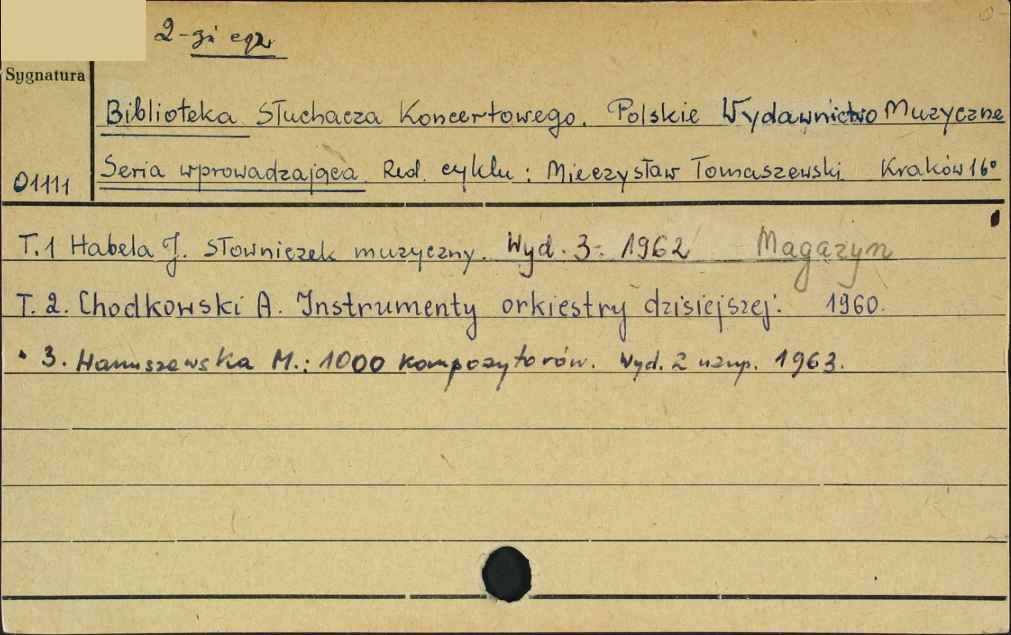 2-gi egz
Sygnatura
Biblioteka Słuchacza Koncertowego. Polskie Wydawnictwo Muzyczne
01111 Seria wprowadzająca Red. cyklu: Mieczysław Tomaszewski Kraków 16°
T.1 Habela J. Słowniczek muzyczny. Wyd. 3. 1962 Magazyn
T. 2. Chodkowski A. Instrumenty orkiestry dzisiejszej. 1960.
" 3. Hanuszewska M.: 1000 kompozytorów. Wyd. 2 uzup. 1963.